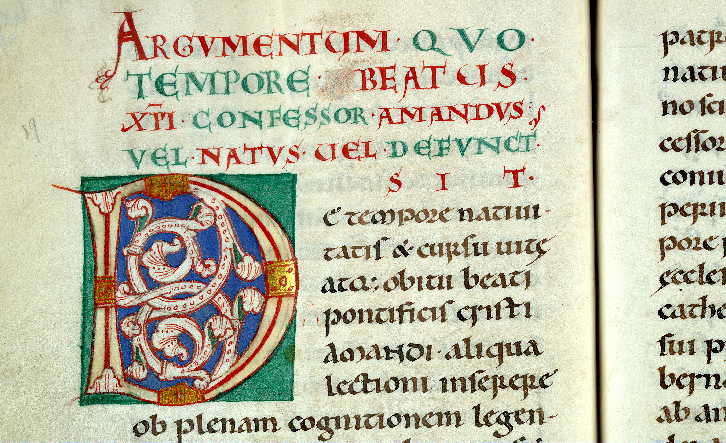 ARGVMENTUM · QVO ·
TEMPORE BEATUS ·
XP̅I · CONFESSOR · AMANDVS ·
VEL · NATVS · UEL · DEFUNCT ·
S I T ·
De tempore natiui-
tatis & cursu uitę
atq; obitu beati
pontificis cristi
amandi · aliqua
lectioni inserere
ob plenam cognitionem legen-
patr
natu
no sci
cessor
conu
peru
pore p
eccle
cathe
sui p
berna
ab an